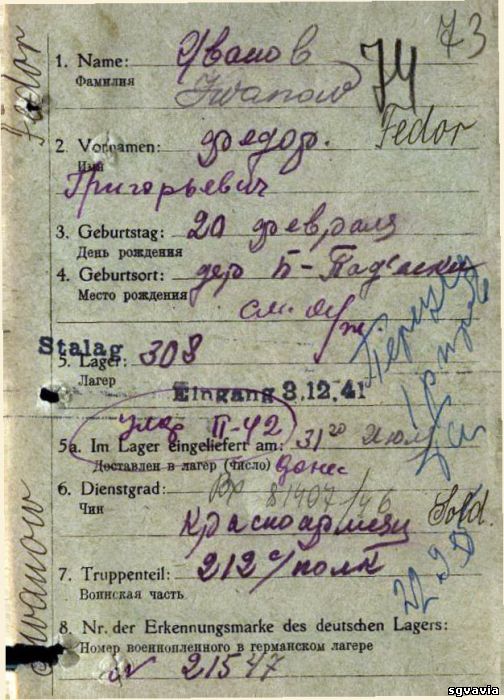 73
74
1. Name: Иванов
Фамилия Iwanow
Fedor
Fedor
2. Vornamen: Федор.
Имя
Григорьевич
3. Geburtstag: 20 февраля
День рождения
4. Geburtsort: дер Б-
Место рождения
см. окр
Stalag
5. Lager: 308
Лагер
Eingang 3.12.41
II-42
5a. Im Lager eingeliefert am: 31го Июля
Доставлен в лагер (число) донес
6. Dienstgrad: 81407/46
Чин
Красноармеец Sold
7. Truppenteil: 212 с/полк
Воинская часть
8. Nr. der Erkennungsmarke des deutschen Lagers:
Номер военнопленного в германском лагере
N 21547
Iwanow
sgvavia